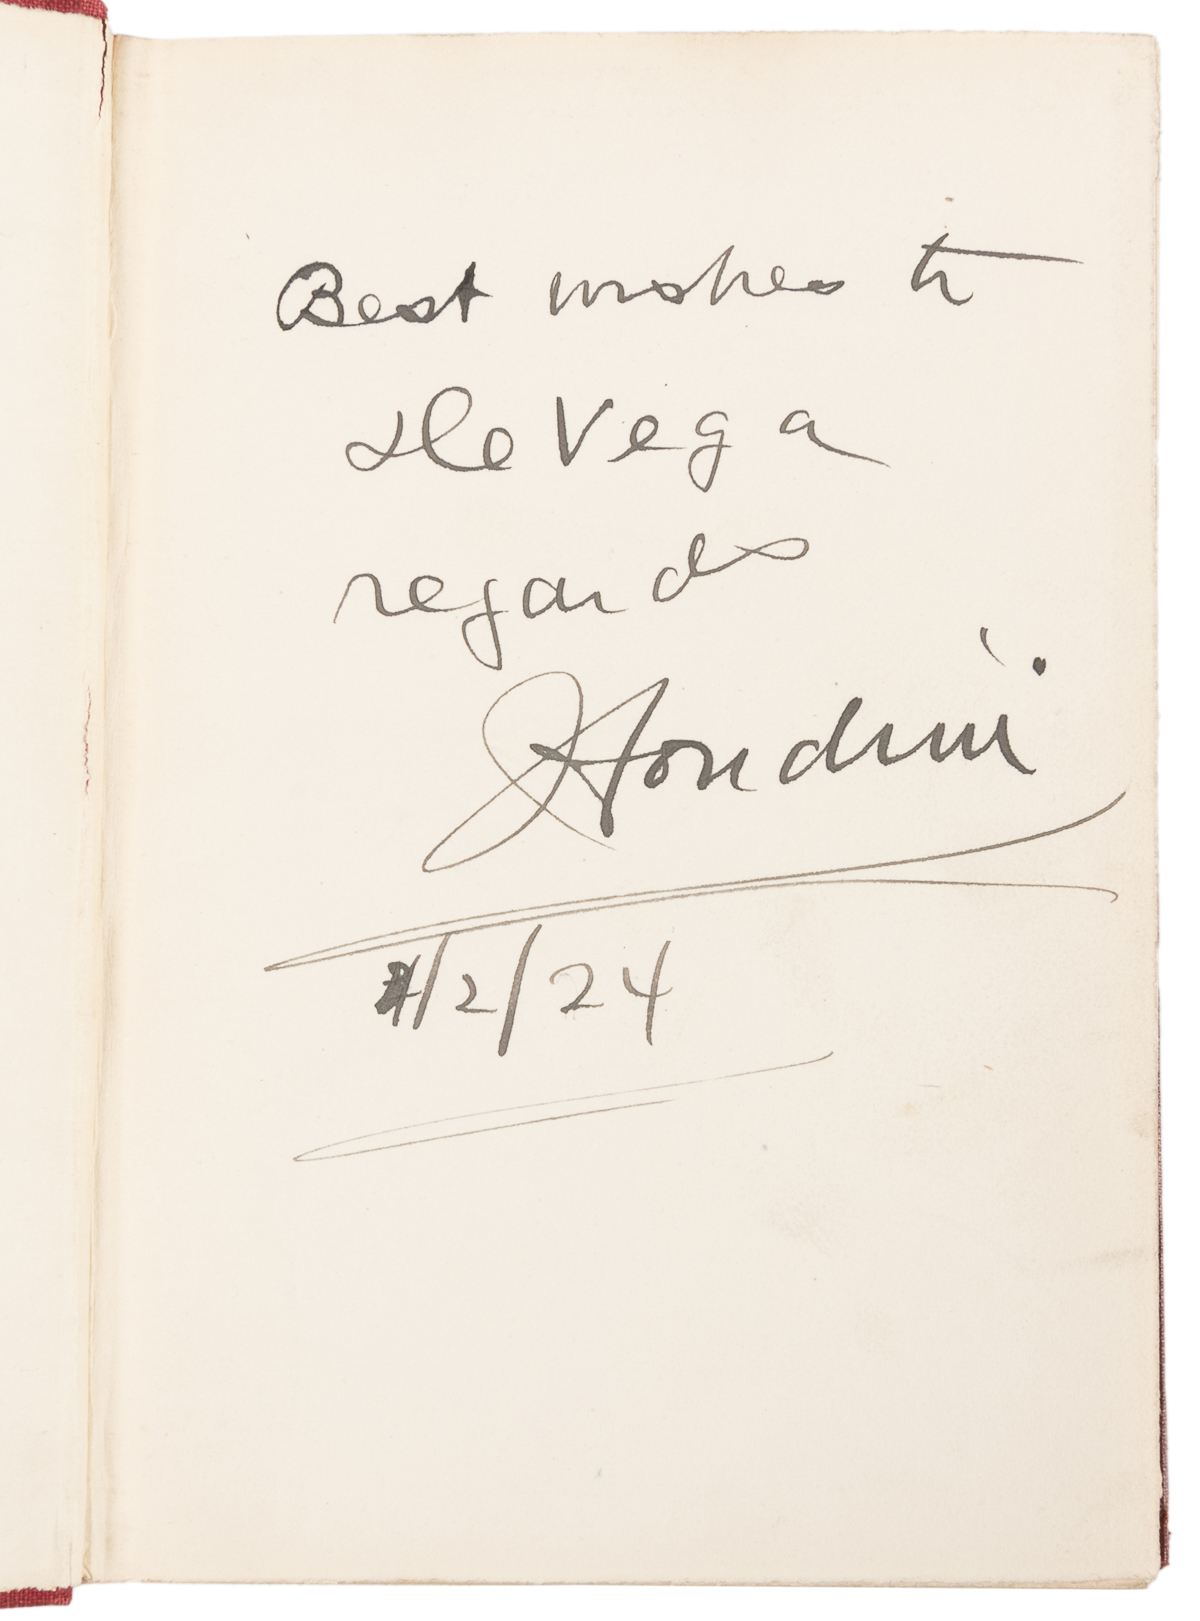 Best wishes to
De Vega
regards
Houdini
/2/24